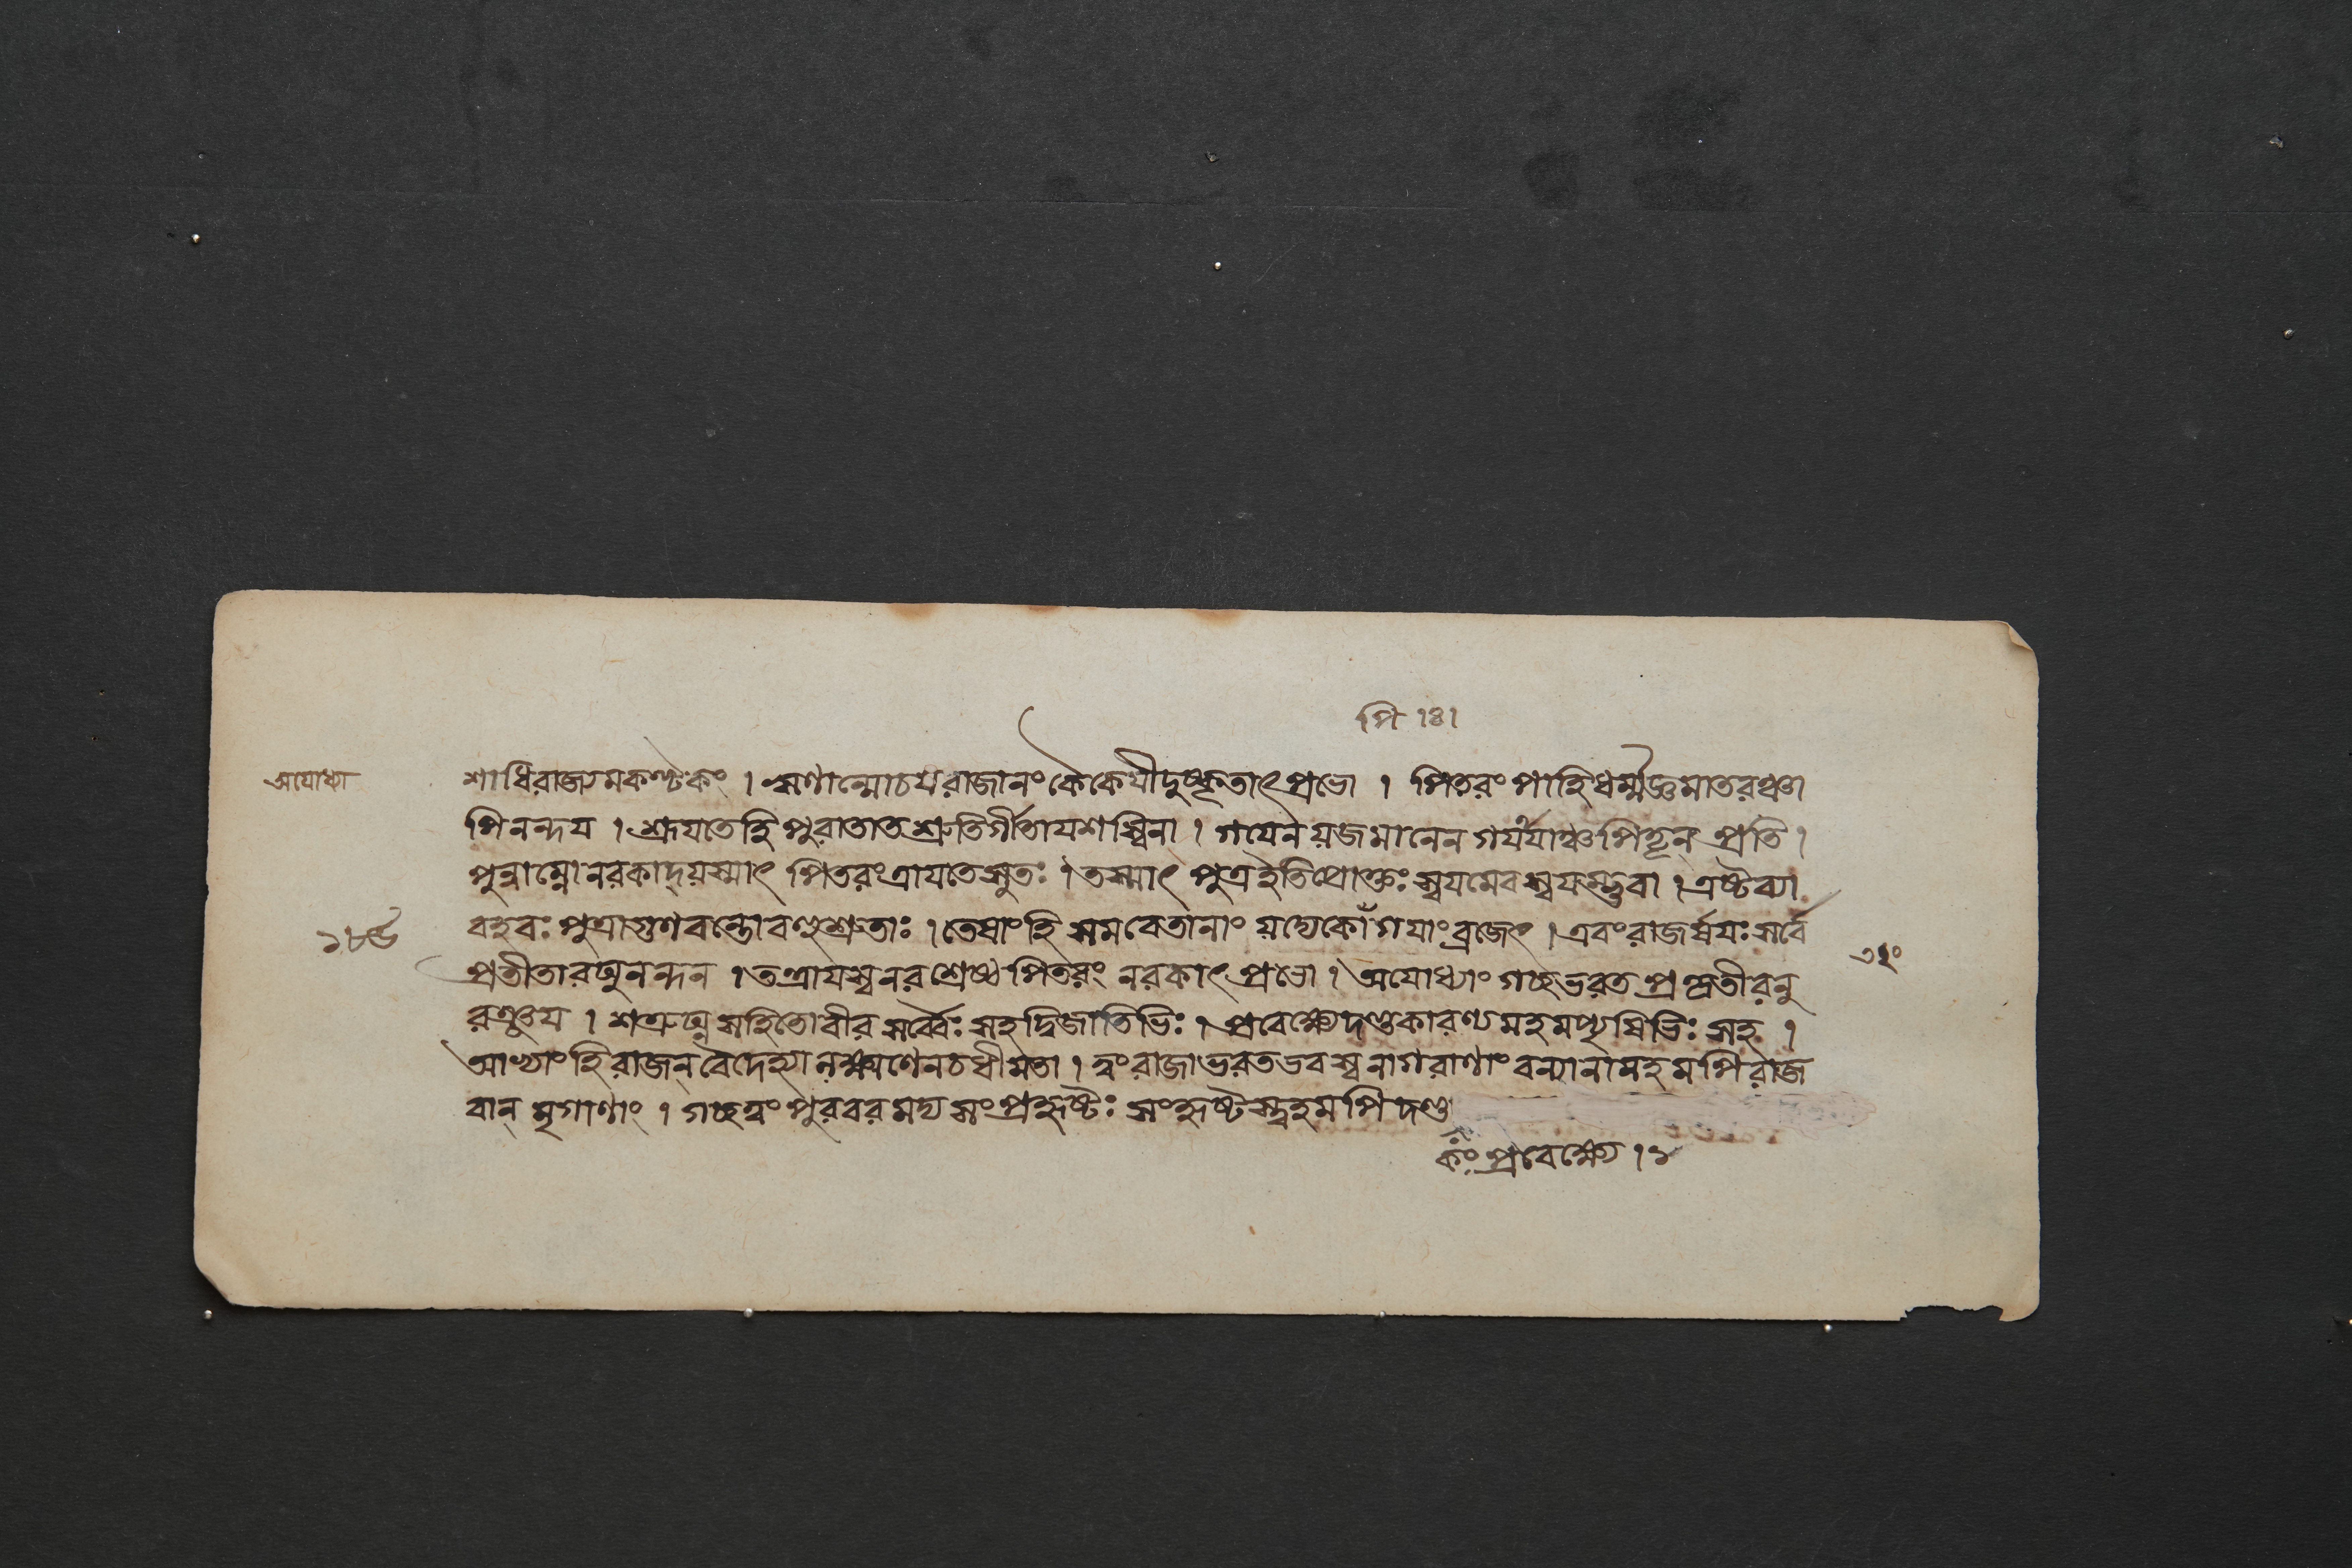 পি ।৪।
अयोध्या
শাধিরাজ্যমকণ্টকং । ঋণান্মোচয়রাজানং কৈকেয়ীদুষ্কৃতাৎ প্রভো । পিতরং পাহিধর্ম্মজ্ঞমাতরঞ্চা
ভিনন্দয় । শ্রূয়তেহি পুরাতাত শ্রুতির্গীতাযশস্বিনা । গয়েন যজমানেন গয়র্য্যাঞ্চ পিতৄন্ প্রতি ।
পুন্নাম্নোনরকাদ্ যস্মাৎ পিতরংত্রায়তেসুতঃ । তস্মাৎ পুত্রইতিপ্রোক্তঃ স্বয়মেবস্বয়ম্ভুবা । এষ্টব্যা
বহবঃ পুত্রাগুণবন্তোবহুশ্রুতাঃ । তেষাংহি সমবেতানাং যদ্যেকোঁগয়াংব্রজেৎ । এবংরাজর্ষয়ঃ সর্বে
১৮৬
প্রতীতারঘুনন্দন । তত্রায়স্বনরশ্রেষ্ঠ পিতরং নরকাৎ প্রভো । অযোধ্যাং গচ্ছভরত প্রকৃতীরনু
রঞ্জয় । শত্রুঘ্ন সহিতোবীর সর্ব্বৈঃ সহদ্বিজাতিভিঃ । প্রবেক্ষ্যেদণ্ডকারণ্যমহমপ্যৃষিভিঃ সহ ।
আভ্যাংহিরাজন্ বৈদেহ্যা লক্ষ্মণেনচধীমতা । ত্বংরাজাভরতভবস্বনাগরাণাং বন্যানামহমপিরাজ
বান্ মৃগাণাং । গচ্ছত্বং পুরবরমদ্য সংপ্রহৃষ্টঃ সংহৃষ্টস্ত্বহমপিদণ্ড
কং প্রবেক্ষ্যে । ১